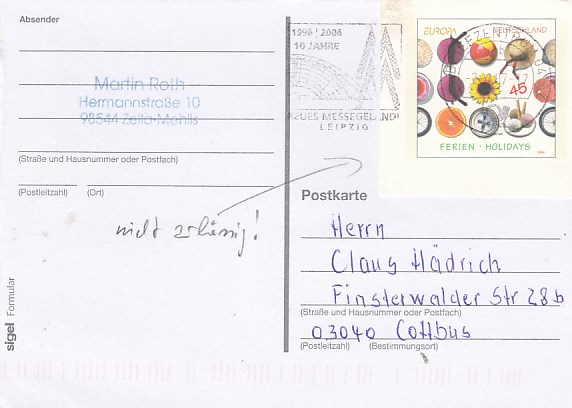 Absender
Martin Roth
Herrmannstraße 10
98544 Zella-Mehlis
(Straße und Hausnummer oder Postfach)
(Postleitzahl) (Ort)
nicht zulässig!
sigel Formular
1996 | 2006
10 JAHRE
NEUES MESSEGELÄNDE
LEIPZIG
BRIEFZENTRUM
EUROPA DEUTSCHLAND
45
FERIEN · HOLIDAYS
Postkarte
Herrn
Claus Hädrich
Finsterwalder Str 28b
(Straße und Hausnummer oder Postfach)
03040 Cottbus
(Postleitzahl) (Bestimmungsort)